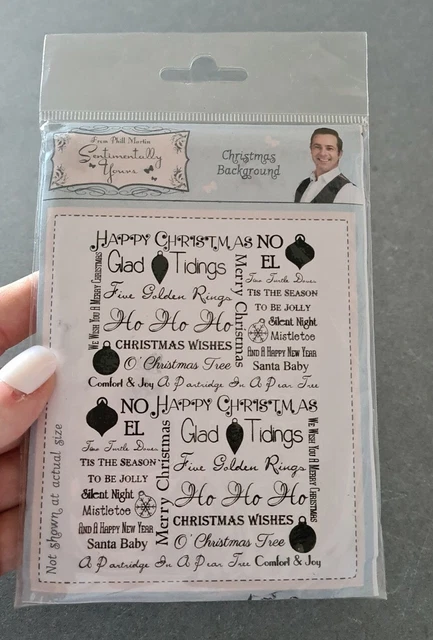 From Phill Martin
Sentimentally
Yours
Christmas
Background
HAPPY CHRISTMAS NO
EL
Glad Tidings
Two Turtle Doves
Five Golden Rings
TIS THE SEASON
TO BE JOLLY
Ho Ho Ho
Silent Night
Mistletoe
CHRISTMAS WISHES
AND A HAPPY NEW YEAR
O' Christmas Tree
Santa Baby
Comfort & Joy A Partridge In A Pear Tree
WE WISH YOU A MERRY CHRISTMAS
Merry Christmas
NO HAPPY CHRISTMAS
EL
Glad Tidings
Two Turtle Doves
TIS THE SEASON
Five Golden Rings
TO BE JOLLY
Silent Night
Ho Ho Ho
Mistletoe
CHRISTMAS WISHES
AND A HAPPY NEW YEAR
O' Christmas Tree
Santa Baby
A Partridge In A Pear Tree Comfort & Joy
Merry Christmas
WE WISH YOU A MERRY CHRISTMAS
Not shown at actual size